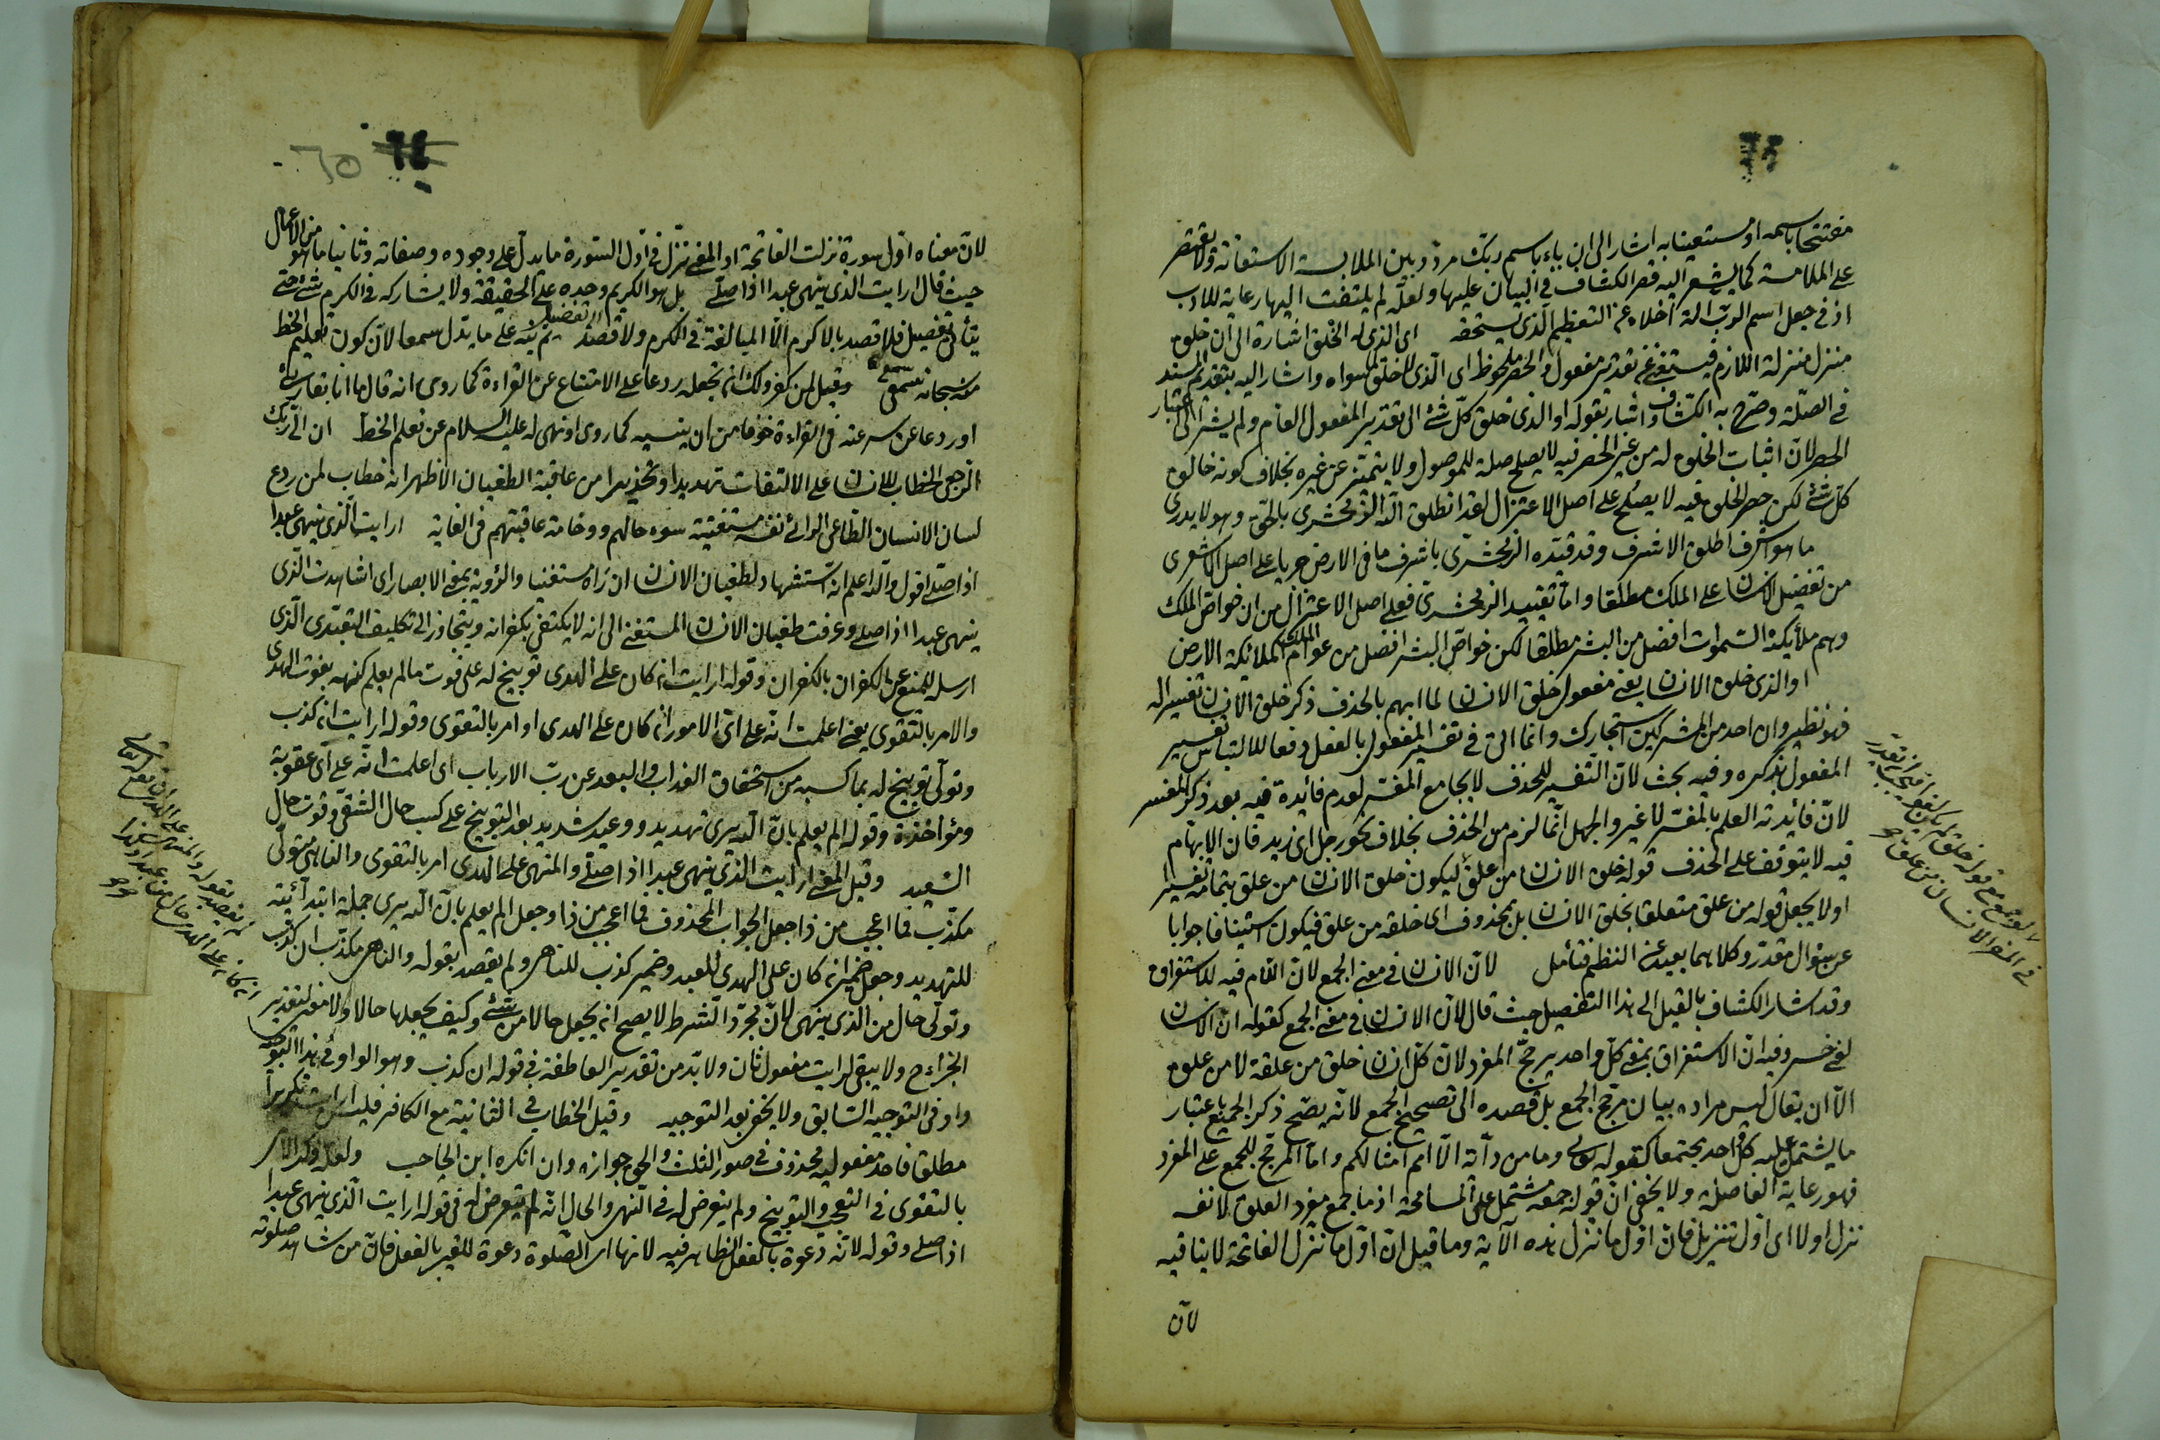 مفتتحا باسمه او مستعينا به اشار الى ان باء باسم ربك مردد بين الملابسة الاستعانة ولا يقتصر
على الملابسة كما يشعر اليه قصر الكشاف في البيان عليها ولعله لم يلتفت اليها رعاية للادب
اذ في جعل اسم الرب الة اخلاء عن التعظيم الذي يستحقه اى الذى له الخلق اشارة الى ان خلق
منزل منزلة اللازم فيستغنى عن تقدير مفعول والحصر ملحوظ اى الذى لا خلق لسواه واشار اليه بتقديم المسند
في الصلة وصرح به الكشاف واشار بقوله او الذى خلق كل شئ الى تقدير المفعول العام ولم يشر الى اعتبار
الحصر لان اثبات الخلق له من غير الحصر فيه لا يصلح صلة للموصول ولا يتميز عن غيره بخلاف كونه خالق
كل شئ لكن حصر الخلق فيه لا يصلح على اصل الاعتزال لقد انطلق الله الزمخشرى بالحق وهو لا يدرى
ما هو اشرف اطلق الاشرف وقد قيده الزمخشرى باشرف ما في الارض جريا على اصل الاشعرى
من تفضيل الانسان على الملك مطلقا واما تقييد الزمخشرى فعلى اصل الاعتزال من ان خواص الملك
وهم ملائكة السموات افضل من البشر مطلقا لكن خواص البشر افضل من عوام الملك الملائكة الارض
او الذى خلق الانسان يعنى مفعول خلق الانسان لما ابهم بالحذف ذكر خلق الانسان تفسيرا له
فهو نظير وان احد من المشركين استجارك وانما اتى في تفسير المفعول بالفعل دفعا للالتباس تفسير
المفعول بذكره وفيه بحث لان التفسير للحذف لا يجامع المفسر لعدم فائدة فيه بعد ذكر المفسر
لان فائدته العلم بالمفسر لا غير والجهل انما لزم من الحذف بخلاف نحو رجل اى زيد فان الابهام
فيه لا يتوقف على الحذف قوله خلق الانسان من علق ليكون خلق الانسان من علق بتمامه تفسير
او لا يجعل قوله من علق متعلقا بخلق الانسان بل بمحذوف اى خلقه من علق فيكون استينافا جوابا
عن سؤال مقدر وكلاهما بعيد عن النظم فتأمل لان الانسان في معنى الجمع لان اللام فيه للاستغراق
وقد اشار الكشاف بالقيل الى هذا التفصيل حيث قال لان الانسان في معنى الجمع كقوله ان الانسان
لفى خسر وفيه ان الاستغراق بمعنى كل واحد يرجح المفرد لان كل انسان خلق من علقة لا من علق
الا ان يقال ليس مراده بيان مرجح الجمع بل قصده الى تصحيح الجمع لانه يصح ذكر الجمع باعتبار
ما يشتمل عليه كل احد مجتمعا كقوله تعالى وما من دابة الا امم امثالكم واما المرجح للجمع على المفرد
فهو رعاية الفاصلة ولا يخفى ان قوله جمعه مشتمل على المسامحة اذ ما جمع مفرد العلق لا نفسه
نزل اولا اى اول تنزيل فان اول ما نزل هذه الآية وما قيل ان اول ما نزل الفاتحة لا ينافيه
لان
لان معناه اول سورة نزلت الفاتحة او المعنى نزل في اول السورة ما يدل على وجوده وصفاته وثانيا ما هو من الاعمال
حيث قال ارايت الذى ينهى عبدا اذا صلى بل هو الكريم وحده على الحقيقة ولا يشاركه في الكرم شئ حتى
يتأتى تفضيل فلا قصد بالاكرم الا المبالغة في الكرم ولا قصد التفضيل ثم نبه على ما يدل سمعا لان كون تعليم الخط
منه سبحانه سمعى وقيل لمن كفر ولك ان تجعله ردعا على الامتناع عن القراءة كما روى انه قال ما انا بقارئ
او ردعا عن سرعته في القراءة خوفا من ان ينسيه كما روى او نهى له عليه السلام عن تعلم الخط ان الى ربك
الرجعى الخطاب للانسان على الالتفات تهديدا وتحذيرا من عاقبة الطغيان الاظهر انه خطاب لمن ردع
لسان الانسان الطاغى الرائى نفسه مستغنية سوء حالهم ووخامة عاقبتهم في الغاية ارايت الذى ينهى عبدا
اذا صلى اقول والله اعلم انه استشهاد لطغيان الانسان ان رآه مستغنيا والرؤية بمعنى الابصار اى اشاهدت الذى
ينهى عبدا اذا صلى وعرفت طغيان الانسان المستغنى الى انه لا يكتفى بكفرانه ويتجاوز الى تكليف الذى
ارسل للمنع عن الكفران بالكفران وقوله ارايت ان كان على الهدى توبيخ له على فوت ما لم يعلم كنهه بفوت الهدى
والامر بالتقوى يعنى اعلمت انه على اى الامور ان كان على الهدى او امر بالتقوى وقوله ارايت ان كذب
وتولى توبيخ له بما كسبه من استحقاق العذاب والبعد عن رب الارباب اى اعلمت انه على اى عقوبة
ومؤاخذة وقوله الم يعلم بان الله يرى تهديد ووعيد شديد بعد التوبيخ على كسب حال الشقى وفوت حال
السعيد وقيل المعنى ارايت الذى ينهى عبدا اذا صلى والمنهى على الهدى امر بالتقوى والناهى متولى
مكذب فما اعجب من ذا جعل الجواب المحذوف فما اعجب من ذا وجعل الم يعلم بان الله يرى جملة ابتدائية
للتهديد وجعل ضمير ان كان على الهدى للعبد وضمير كذب للناهى ولم يقصد بقوله والناهى مكذب ان كذب
وتولى حال من الذى ينهى لان مجرد الشرط لا يصح ان يجعل حالا من شئ وكيف يجعلها حالا ولا
الجزاء ح ولا يبقى لرايت مفعول ثان ولا بد من تقدير العاطفة في قوله ان كذب وهو الواو في هذا التوجيه
واو في التوجيه السابق ولا يخفى بعد التوجيه وقيل الخطاب في الثانية مع الكافر فليس ارايت تكريرا
مطلقا فاحد مفعوليه محذوف في صور الثلث والحق جوازه وان انكره ابن الحاجب ولعله ذكر الامر
بالتقوى في التعجب والتوبيخ ولم يتعرض له في النهى والحال انه لم يتعرض له في قوله ارايت الذى ينهى عبدا
اذا صلى وقوله لانه دعوة بالفعل الظاهر فيه لانها اى الصلوة دعوة للغير بالفعل فان من شاهد صلوته